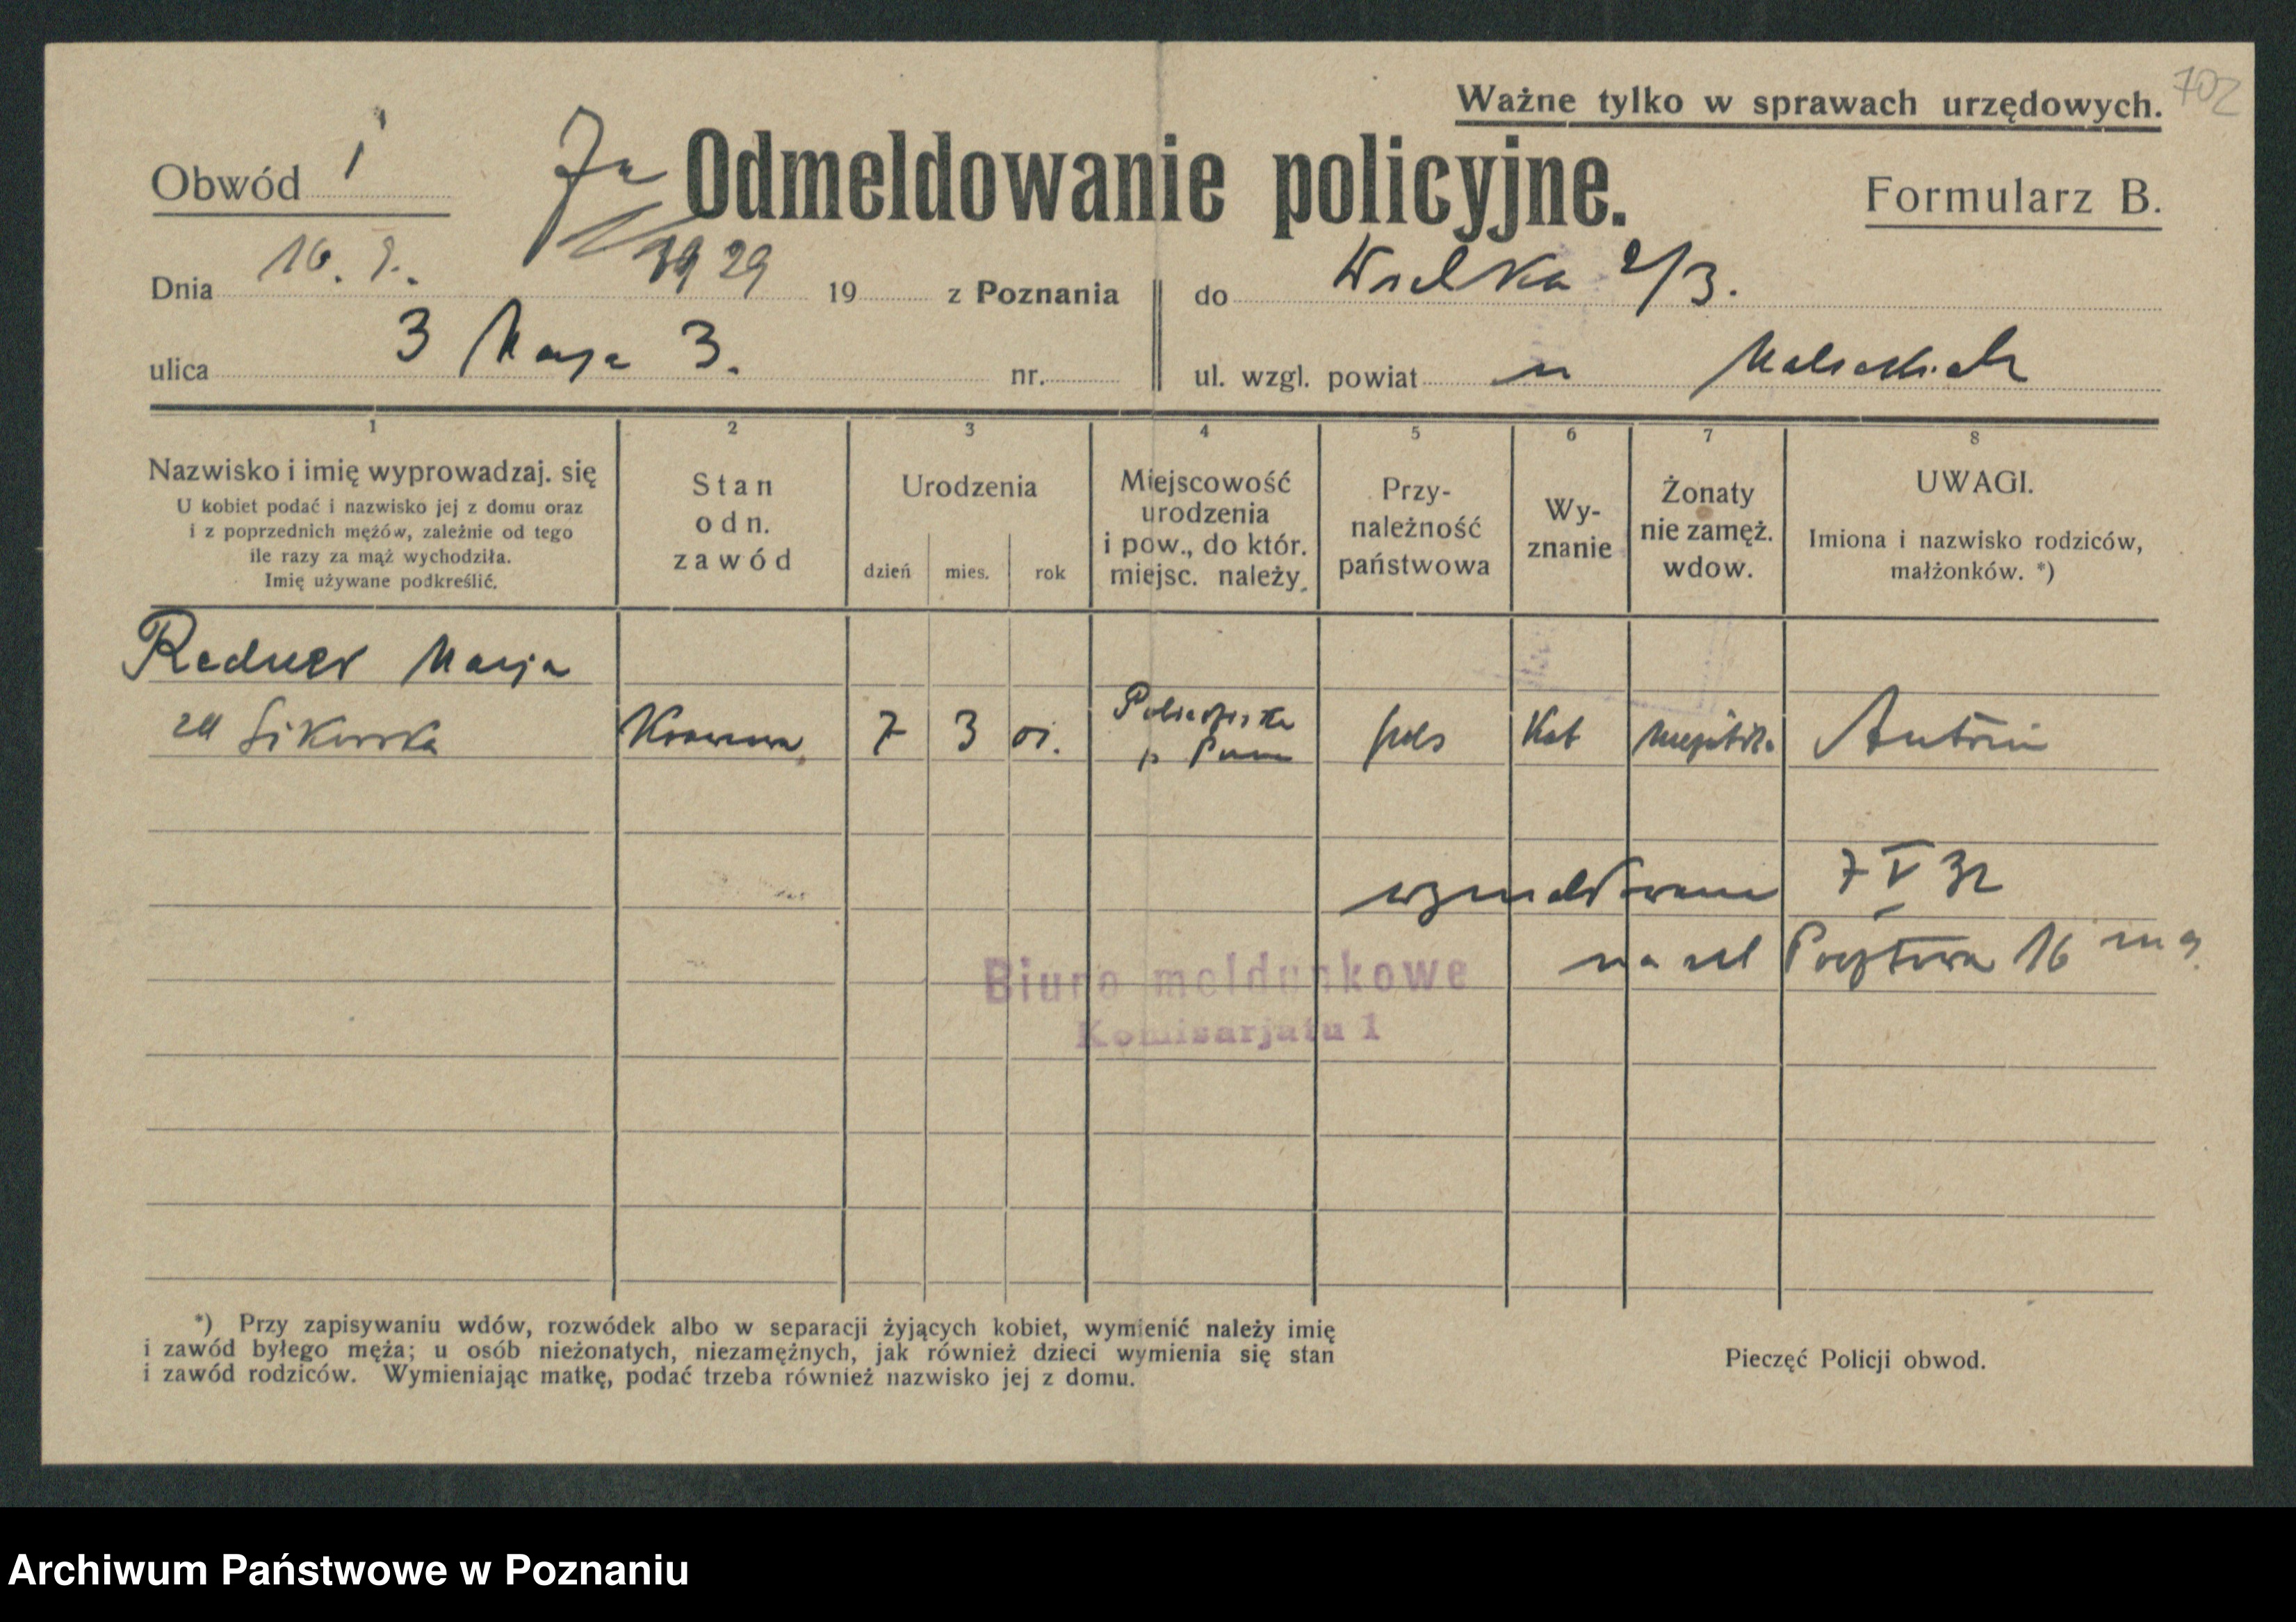 Ważne tylko w sprawach urzędowych.
702
Obwód I
Odmeldowanie policyjne.
Formularz B.
Dnia 16. 29 19 z Poznania
do Wielka 2/3.
ulica 3 Maja 3. nr.
ul. wzgl. powiat u
1 2 3 4 5 6 7 8
Nazwisko i imię wyprowadzaj. się
U kobiet podać i nazwisko jej z domu oraz
i z poprzednich mężów, zależnie od tego
ile razy za mąż wychodziła.
Imię używane podkreślić.
Stan
odn.
zawód
Urodzenia
dzień mies. rok
Miejscowość
urodzenia
i pow., do któr.
miejsc. należy.
Przy-
należność
państwowa
Wy-
znanie
Żonaty
nie zamęż.
wdow.
UWAGI.
Imiona i nazwisko rodziców,
małżonków. *)
Radner Marja
Sikorska 7 3 01. pols Kat
wymeldowana 7 V 32
na ul Pocztowa 16
Biuro meldunkowe
Komisarjatu 1
*) Przy zapisywaniu wdów, rozwódek albo w separacji żyjących kobiet, wymienić należy imię
i zawód byłego męża; u osób nieżonatych, niezamężnych, jak również dzieci wymienia się stan
i zawód rodziców. Wymieniając matkę, podać trzeba również nazwisko jej z domu.
Pieczęć Policji obwod.
Archiwum Państwowe w Poznaniu